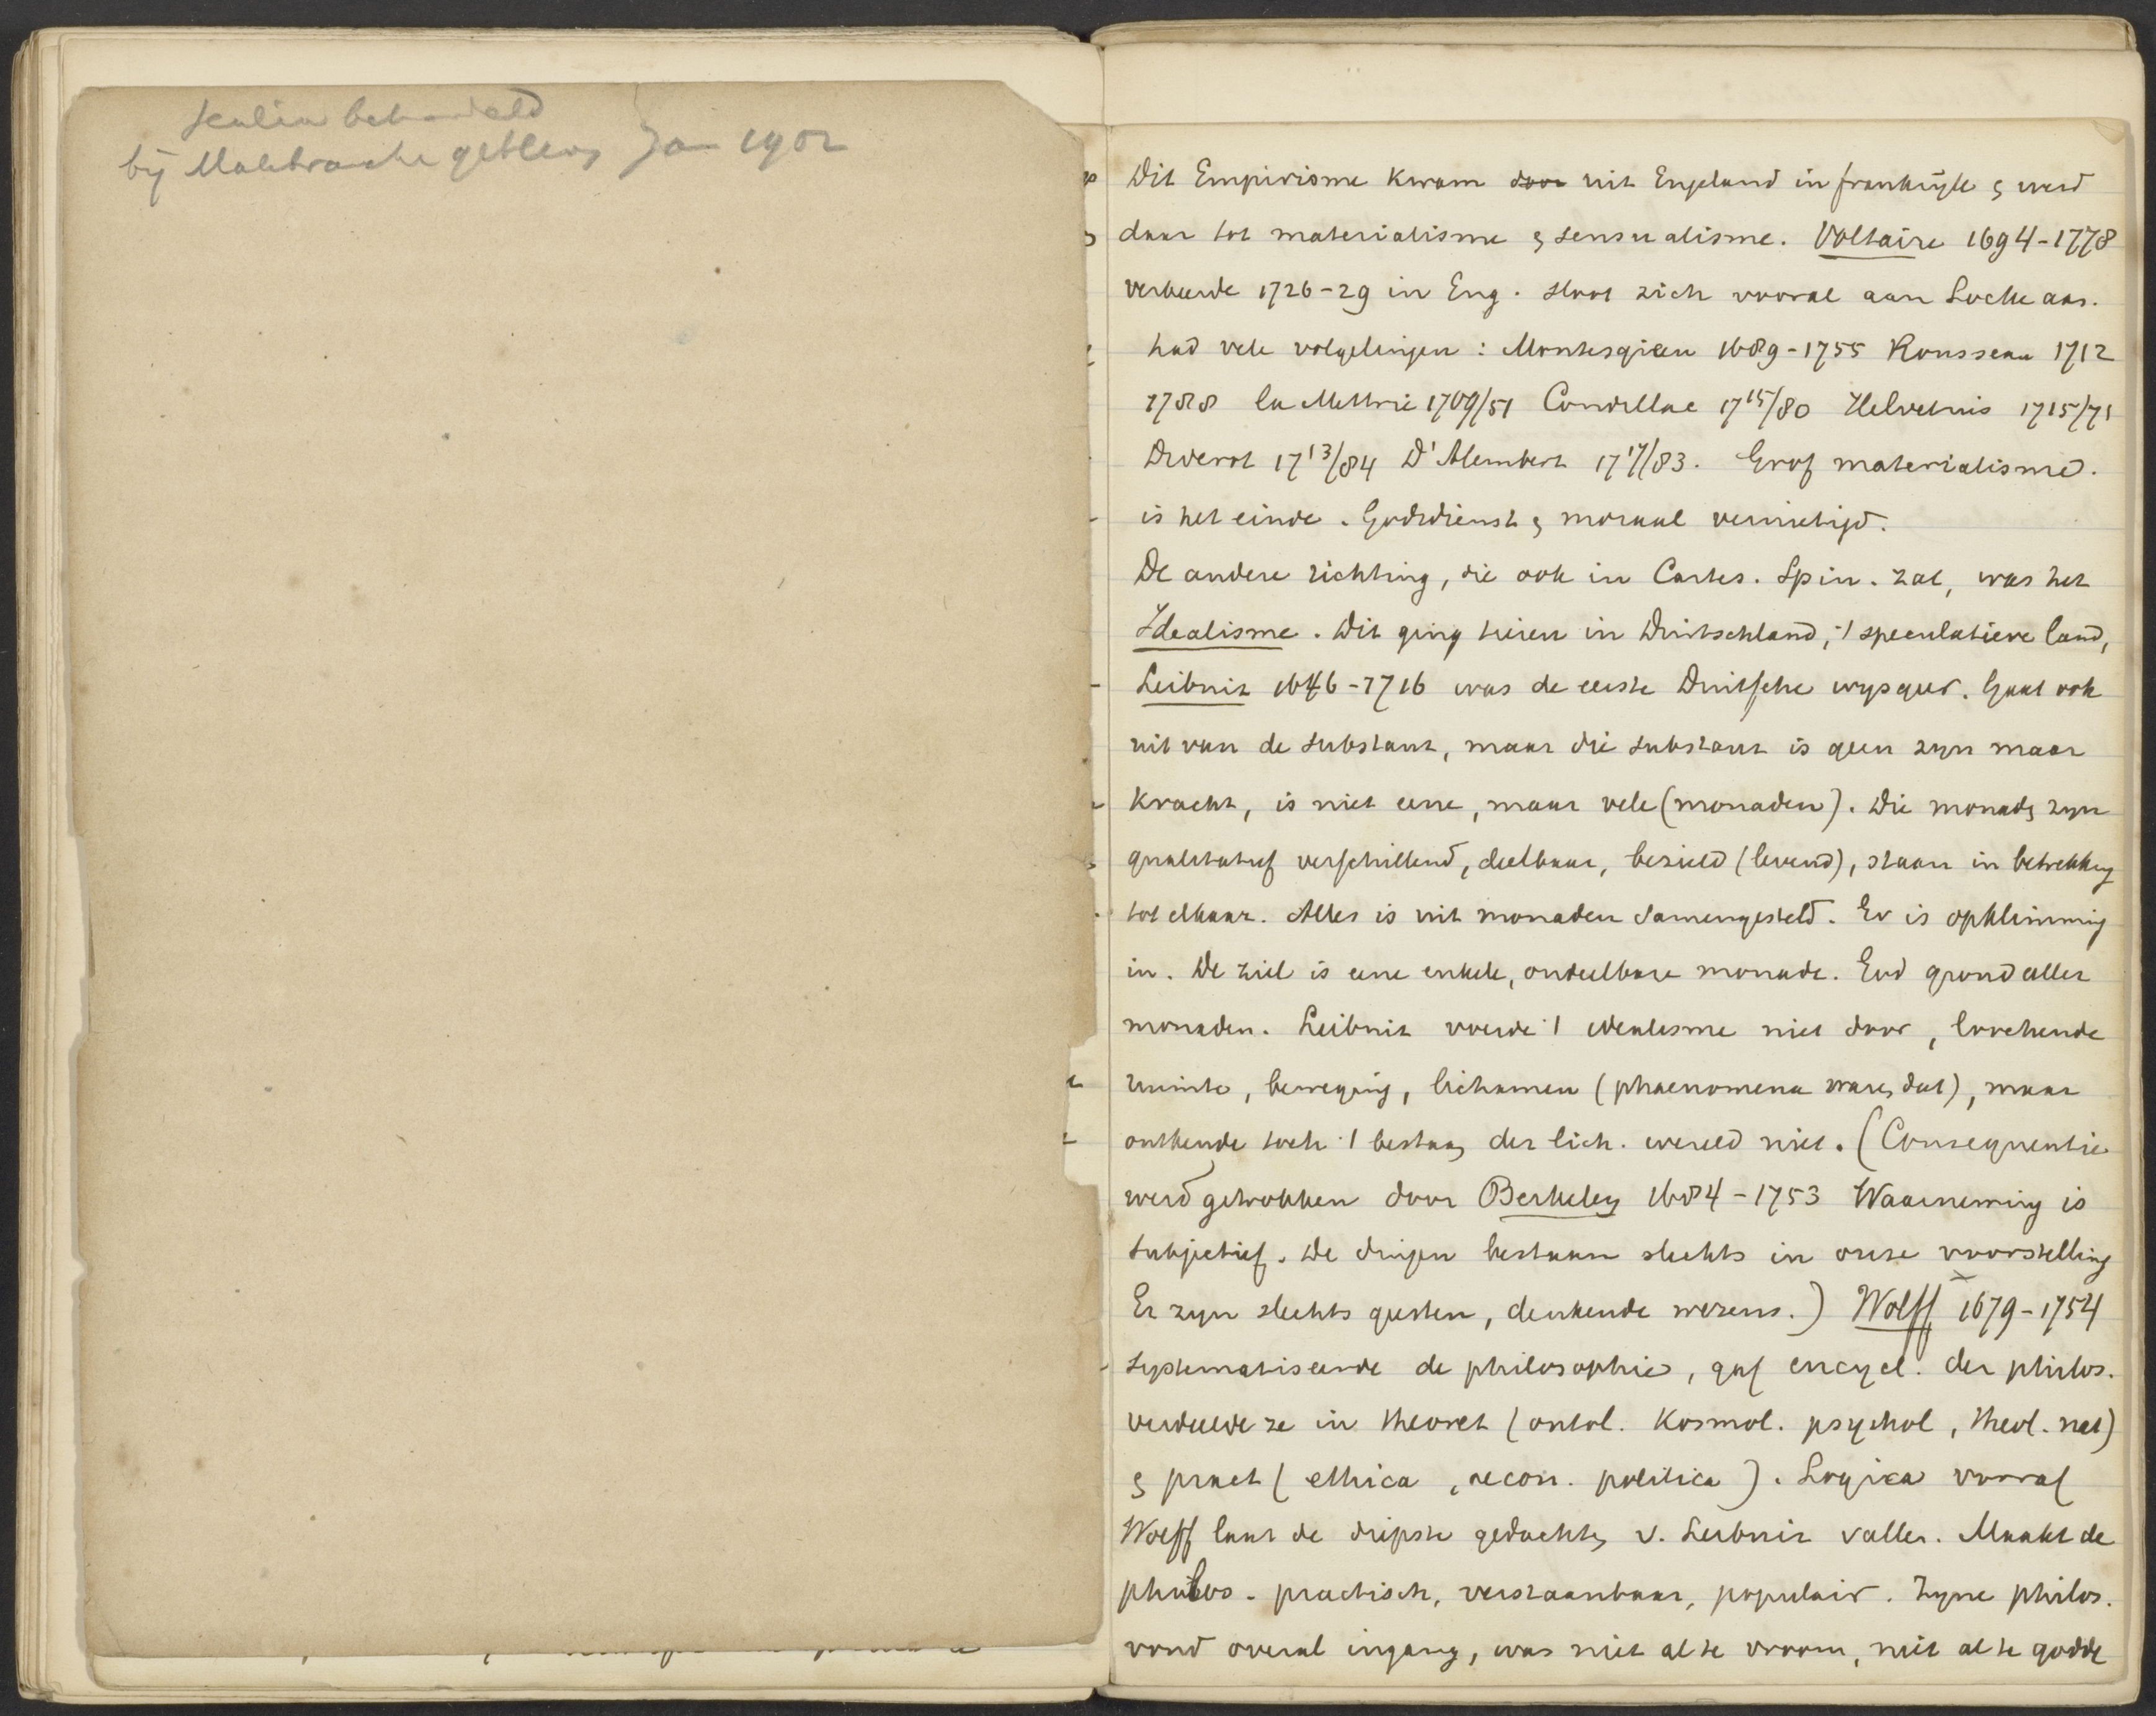 behandeld
bij Malebranche gebleven Jan 1902
Dit Empirisme kwam door uit Engeland in frankrijk & werd
daar tot materialisme & sensualisme. Voltaire 1694-1778
verkeerde 1726-29 in Eng. sloot zich vooral aan Locke aan.
had vele volgelingen: Montesquieu 1689-1755 Rousseau 1712
1788 la Mettrie 1709/51 Condillac 1715/80 Helvetius 1715/71
Diderot 1713/84 D'Alembert 1717/83. Grof materialisme.
is het einde. Godsdienst & moraal vernietigd.
De andere richting, die ook in Cartes. Spin. zat, was het
Idealisme. Dit ging heen in Duitschland, 't speculatieve land,
Leibnitz 1646-1716 was de eerste Duitsche wijsgeer. Gaat ook
uit van de substant, maar die substant is geen zyn maar
kracht, is niet eene, maar vele (monaden). Die monad. zyn
qualitatief verschillend, deelbaar, bezield (levend), staan in betrekking
tot elkaar. Alles is uit monaden samengesteld. Er is opklimming
in. De ziel is eene enkele, ondeelbare monade. God grond aller
monaden. Leibnitz voerde 't idealisme niet door, loochende
ruimte, beweging, lichamen (phaenomena waren dat), maar
ontkende toch 't bestaan der lich. wereld niet. (Consequentie
werd getrokken door Berkeley 1684-1753 Waarneming is
subjectief. De dingen bestaan slechts in onze voorstelling
Er zyn slechts geesten, denkende wezens.) Wolff 1679-1754
systematiseerde de philosophie, gaf encycl. der philos.
verdeelde ze in theoret (ontol. kosmol. psychol, theol. nat)
& pract (ethica, oecon. politica). Logica vooraf
Wolff laat de diepste gedachten v. Leibnitz vallen. Maakt de
philos. practisch, verstaanbaar, populair. Zyne philos.
vond overal ingang, was niet al te vroom, niet al te godde